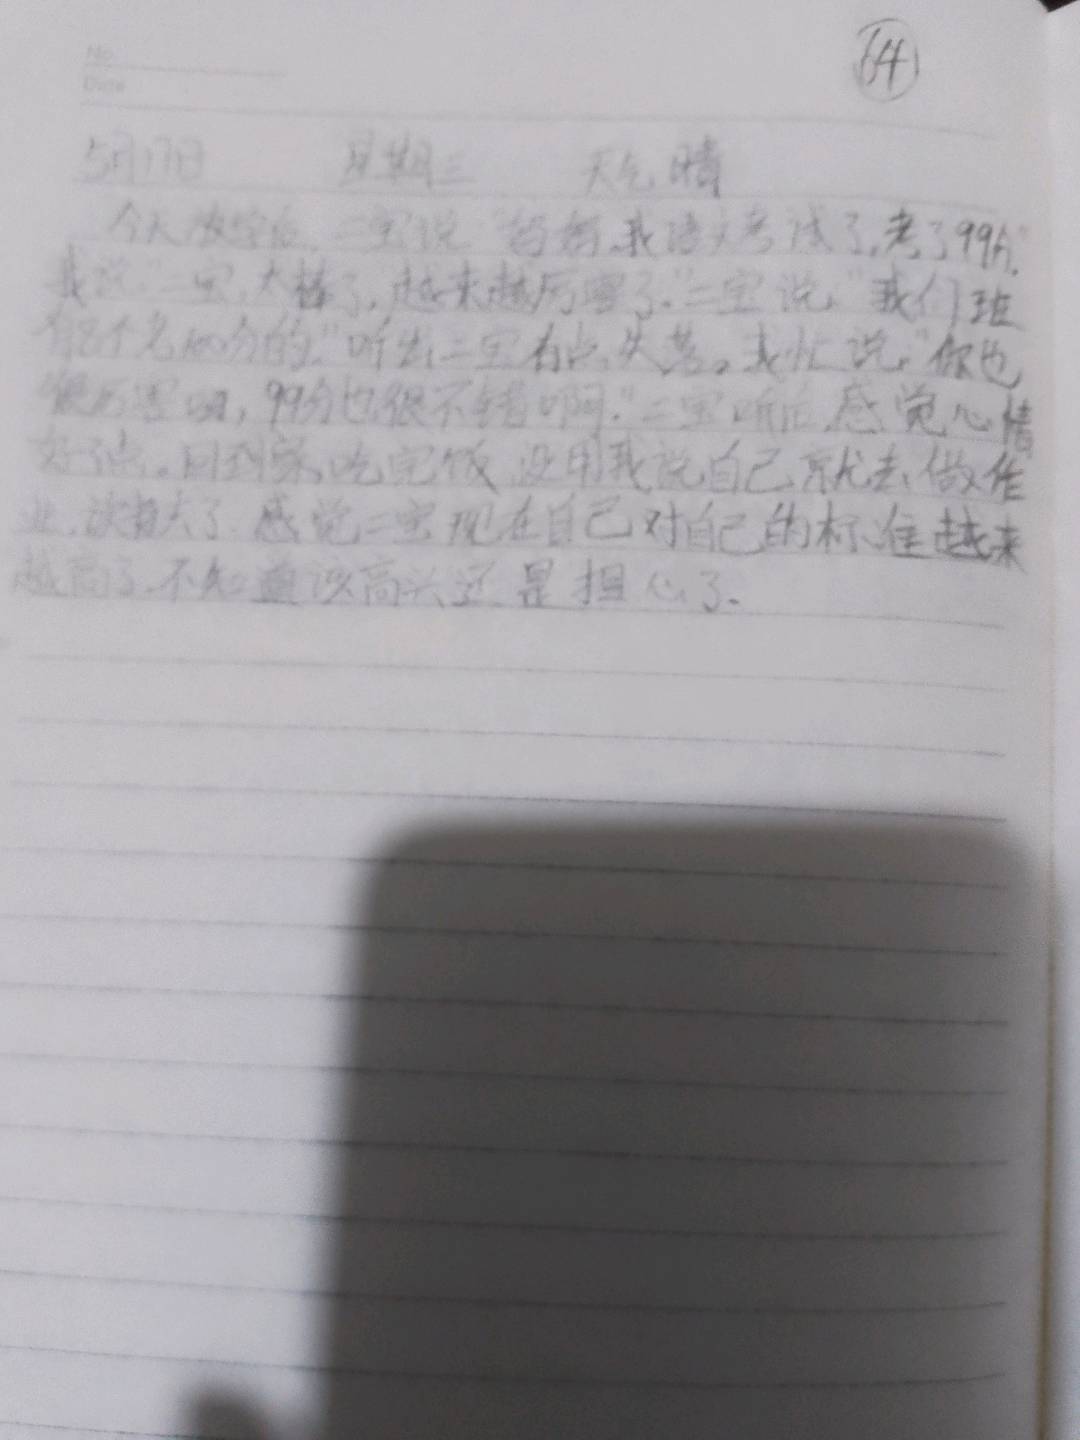 64
No.
Date
5月17日 星期三 天气 晴
今天放学后,二宝说:"妈妈,我语文考试了,考了99分."
我说:"二宝,太棒了,越来越厉害了."二宝说:"我们班
有 个 100分的."听出二宝有点失落。我忙说:"你也
很厉害 ,99分也很不错啊."二宝听后,感觉心情
好了点。回到家,吃完饭,没用我说自己就去做作
业, 大了.感觉二宝现在自己对自己的标准越来
越高了,不知道该高兴还是担心了.